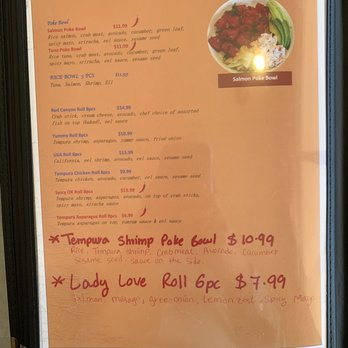 Poke Bowl
Salmon Poke Bowl $11.99
Rice salmon, crab meat, avocado, cucumber, green leaf,
spicy mayo, sriracha, eel sauce, sesame seed
Tuna Poke Bowl $11.99
Rice tuna, crab meat, avocado, cucumber, green leaf,
spicy mayo, sriracha, eel sauce, sesame seed
RICE BOWL 3 PCS
Tuna, Salmon, Shrimp, Eel
Salmon Poke Bowl
Red Canyon Roll 8pcs $14.99
Crab stick, cream cheese, avocado, chef choice of assorted
fish on top (baked), eel sauce
Yummy Roll 8pcs $10.99
Tempura shrimp, asparagus, yummy sauce, fried onion
USA Roll 8pcs $13.99
California, eel shrimp, avocado, eel sauce, sesame seed
Tempura Chicken Roll 8pcs $9.99
Tempura chicken, avocado, cucumber, eel sauce, sesame seed
Spicy OK Roll 8pcs $13.99
Tempura shrimp, asparagus, avocado, on top of crab sticks,
spicy mayo, sriracha sauce
Tempura Asparagus Roll 8pcs $6.99
Tempura asparagus on top, yumyum sauce & eel sauce
* Tempura Shrimp Poke Bowl $10.99
Rice, Tempura shrimp, Crabmeat, Avocado, Cucumber
Sesame seed, sauce on the side.
* Lady Love Roll 6pc $7.99
Salmon, mango, green onion, Lemon zest, Spicy Mayo